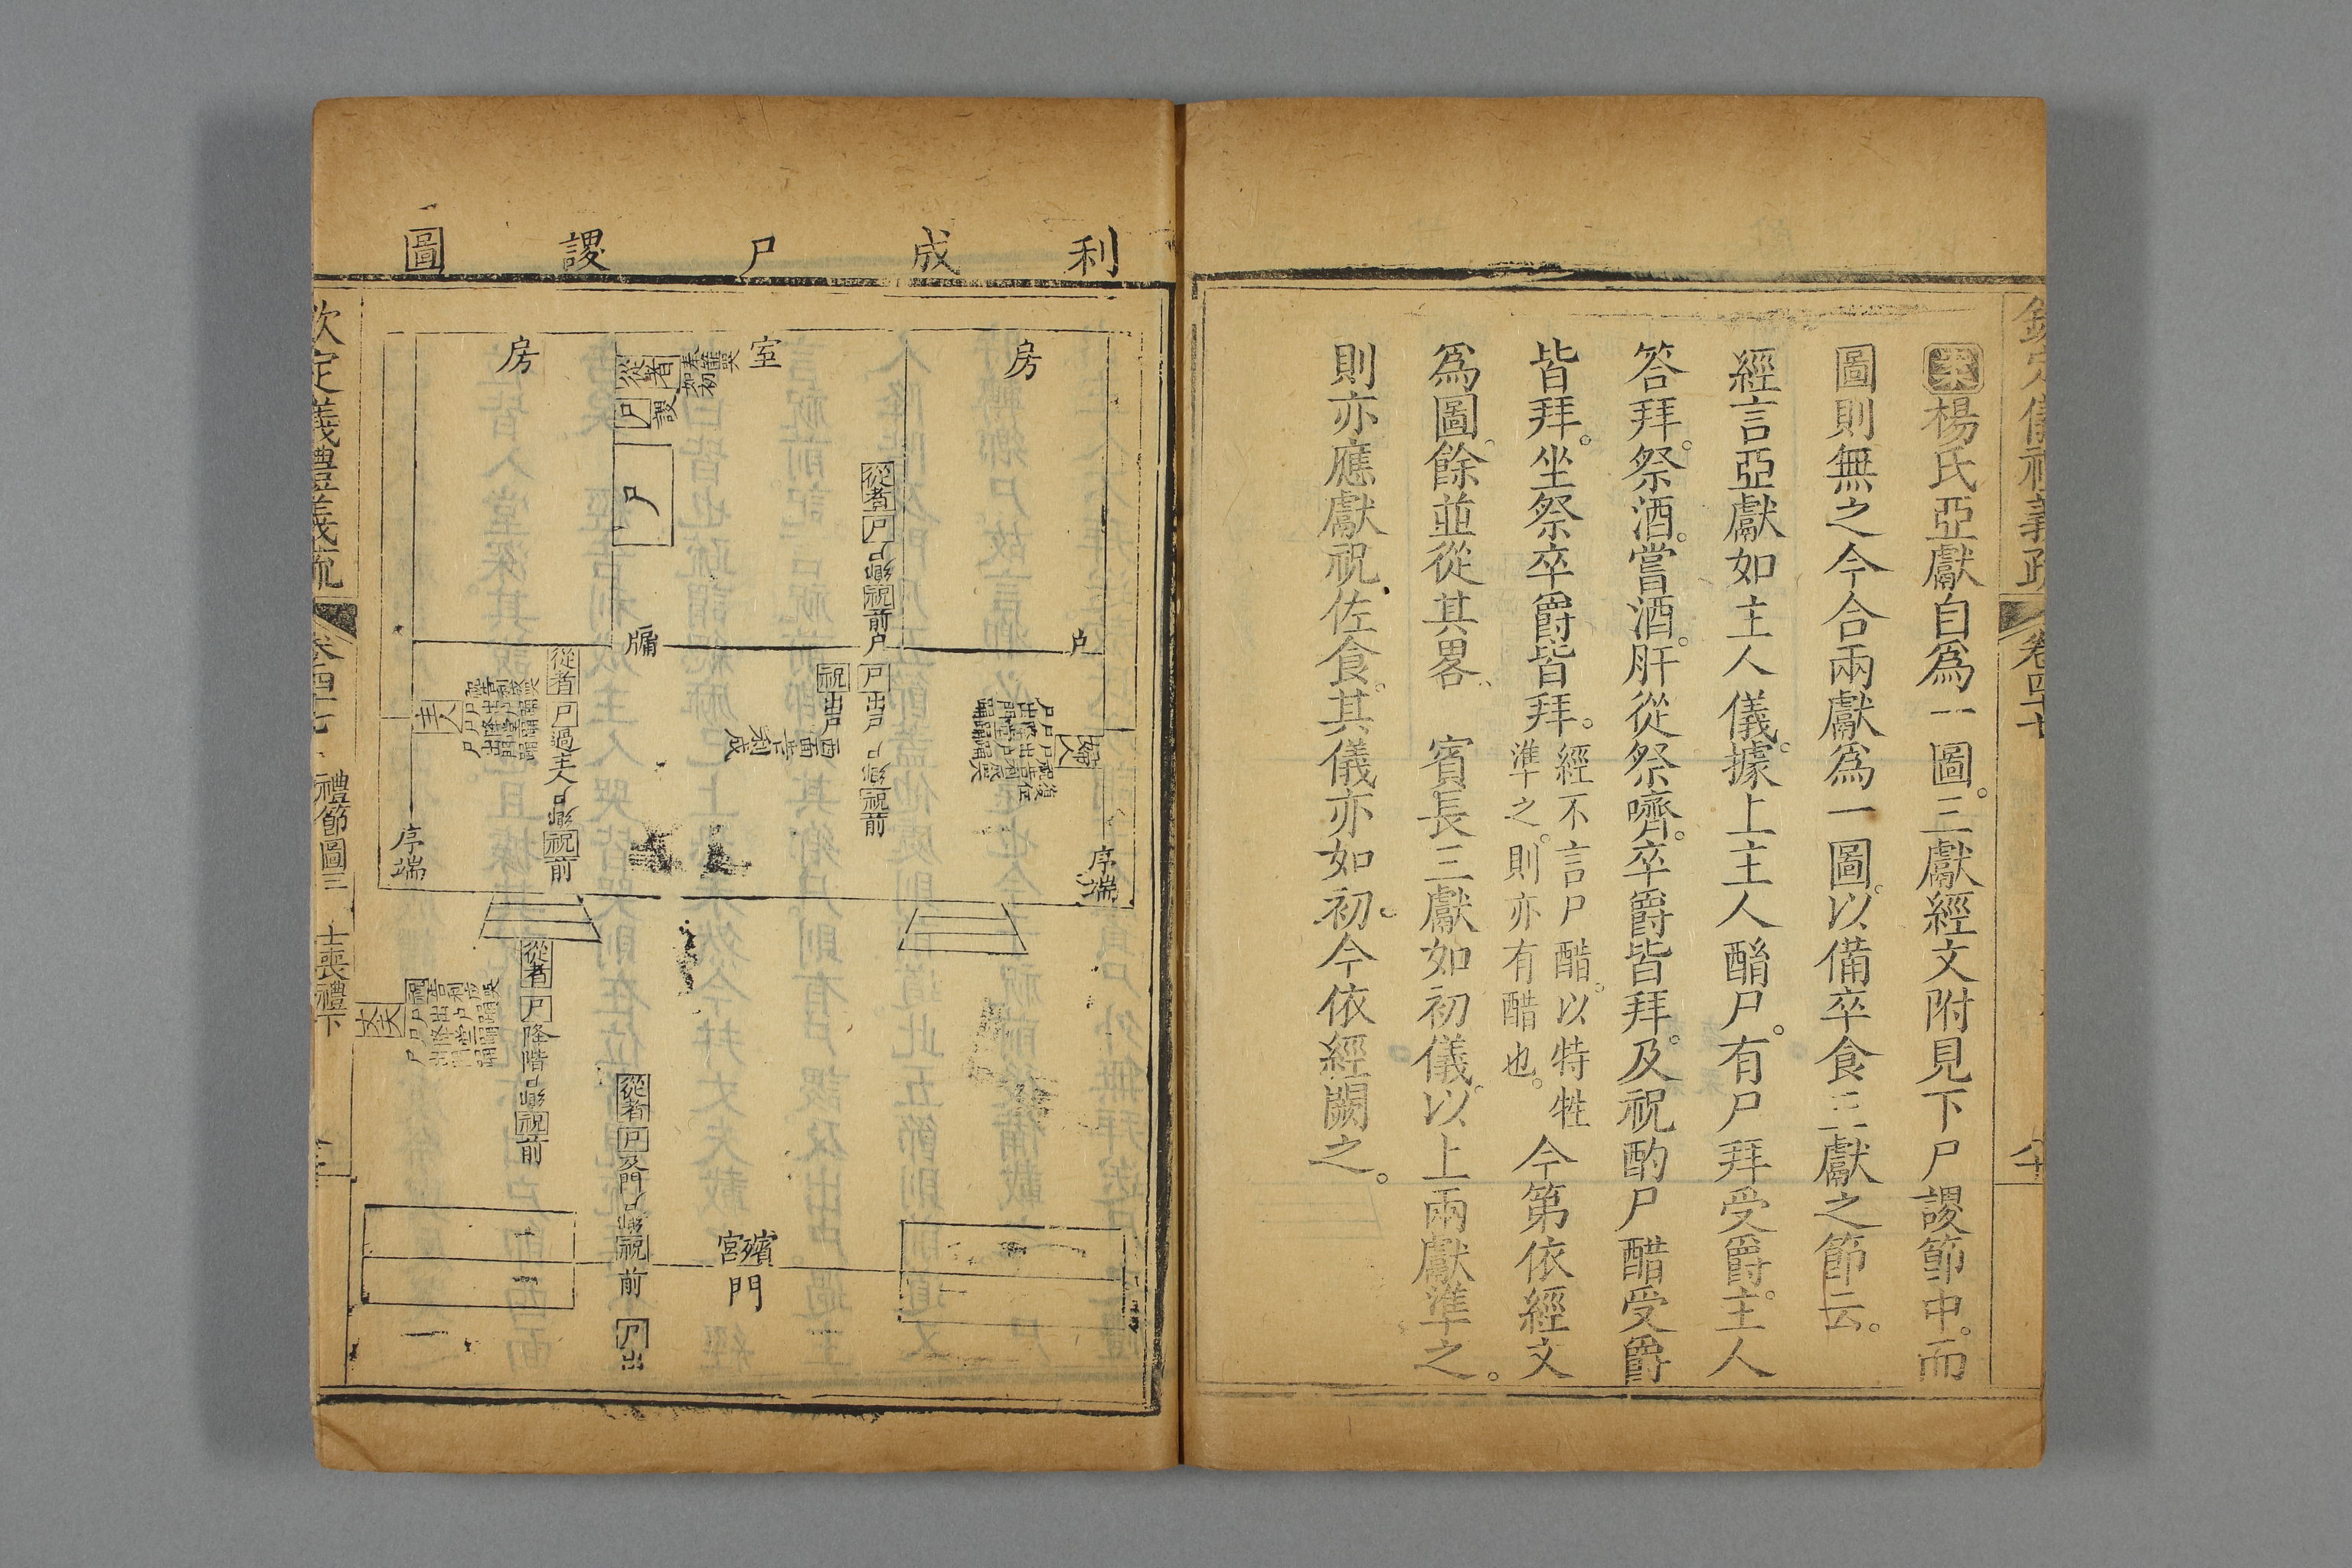 欽定儀禮義疏
卷四十七
案楊氏亞獻自爲一圖。三獻經文附見下尸謖節中。而
圖則無之今合兩獻爲一圖。以備卒食三獻之節云。
經言亞獻如主人儀。據上主人酳尸。有尸拜受爵。主人
答拜。祭酒。嘗酒。肝從祭嚌。卒爵皆拜。及祝酌尸醋受爵
皆拜。坐祭卒爵皆拜。經不言尸醋。以特牲準之。則亦有醋也。今第依經文
爲圖。餘並從其畧。　賓長三獻如初儀。以上兩獻準之。
則亦應獻祝佐食。其儀亦如初。今依經闕之。
利成尸謖圖
房
室
房
從者
尸謖
尸
從者尸鄉祝前
戶
戶
牖
尸出戶鄉祝前
祝出戶
西面告利成
婦人
從者尸過主人鄉祝前
主人
序端
序端
從者尸降階鄉祝前
丈夫
從者尸及門鄉祝前
尸出
殯宮門
欽定儀禮義疏
卷四十七
禮節圖三
士喪禮下